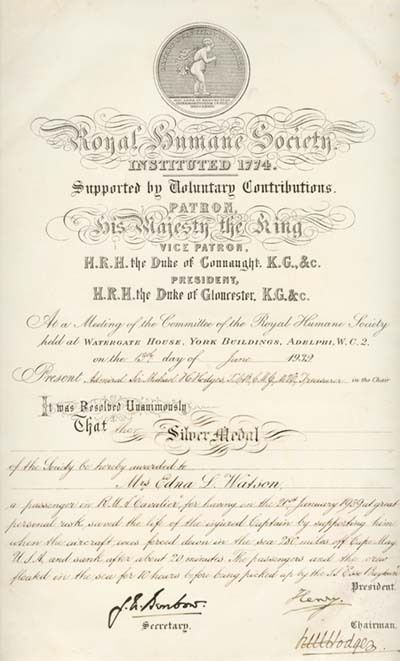 Royal Humane Society.
INSTITUTED 1774.
Supported by Voluntary Contributions.
PATRON,
His Majesty the King
VICE PATRON,
H.R.H. the Duke of Connaught, K.G., &c.
PRESIDENT,
H.R.H. the Duke of Gloucester, K.G. &c.
At a Meeting of the Committee of the Royal Humane Society
held at WATERGATE HOUSE, YORK BUILDINGS, ADELPHI, W.C.2.
on the day of June 1939
Present Admiral Sir Michael H. Hodges, Treasurer in the Chair
It was Resolved Unanimously
That the
Silver Medal
of the Society be hereby awarded to
Mrs Edna L. Watson
a passenger in R.M.A. "Cavalier", for having on the 21st January 1939 at great
personal risk saved the life of the injured Captain by supporting him
when the aircraft was forced down in the sea 280 miles off Cape May
U.S.A. and sank after about 20 minutes. The passengers and the crew
floated in the sea for 10 hours before being picked up by the
President.
Henry.
Secretary.
Chairman.